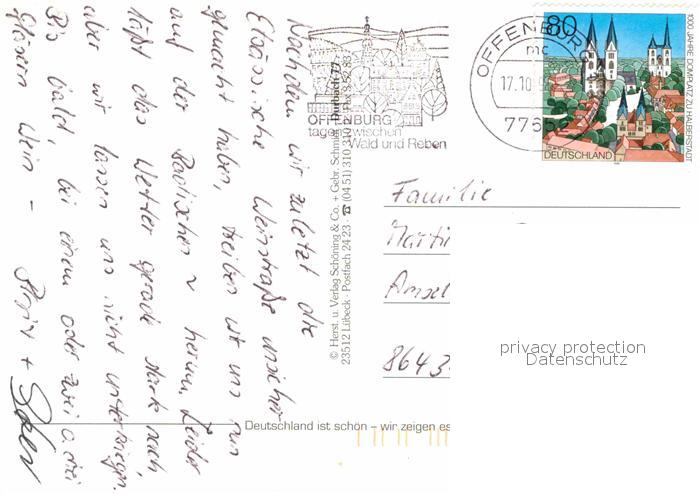 Nachdem wir zuletzt die
Elsässische Weinstraße unsicher
gemacht haben, treiben wir uns nun
auf der Badischen ~ herum. Leider
läßt das Wetter gerade stark nach,
aber wir lassen uns nicht unterkriegen.
Bis bald, bei einem oder zwei o. drei
Gläsern Wein –
© Herst. u. Verlag Schöning & Co. + Gebr. Schmidt
23512 Lübeck · Postfach 24 23 · ☎ (04 51) 310 310
Durbach 77
OFFENBURG
tagen zwischen
Wald und Reben
OFFENBURG
mc
17.10.
7765
80
DEUTSCHLAND
1000 JAHRE DOMPLATZ ZU HALBERSTADT
Familie
Marti
Amsel
8643
privacy protection
Datenschutz
Deutschland ist schön – wir zeigen es